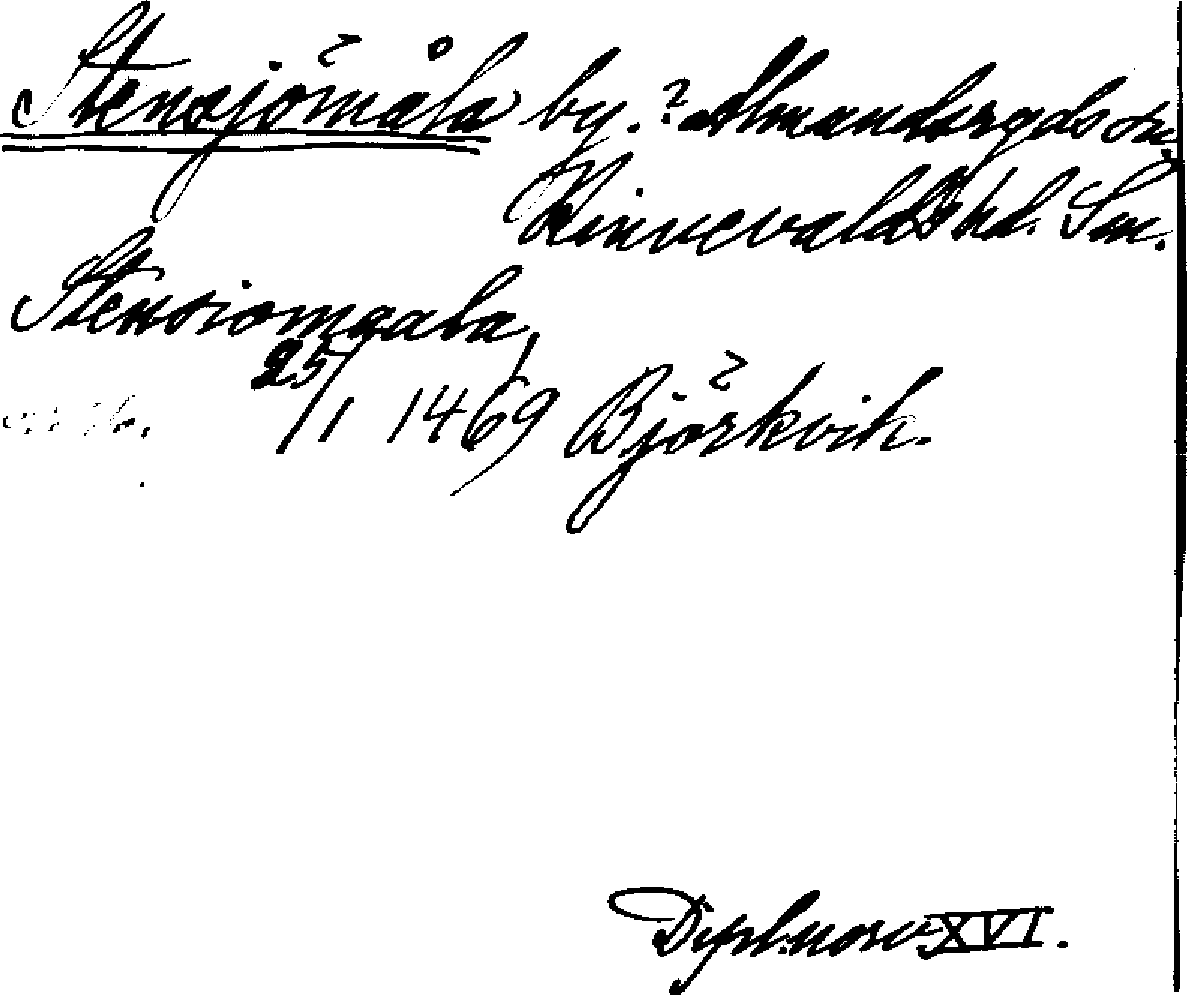 Stensjömåla by. ? Almundsryds sn.
Kinnevalds hd. Sm.
Stensiomaala,
25/1 1469 Björkvik.
Dipl. norv. XVI.